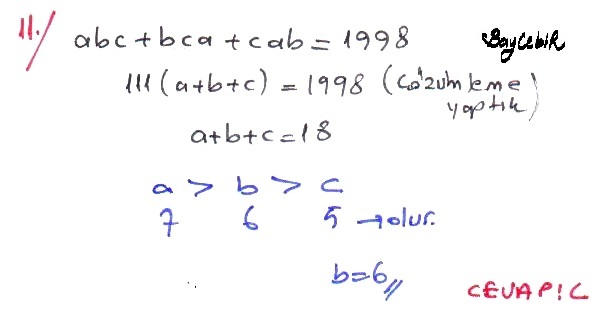 11./ abc+bca+cab=1998 BayCebir
111(a+b+c) = 1998 (Çözümleme
yaptık)
a+b+c=18
a > b > c
7 6 5 → olur.
b=6//
CEVAP:C